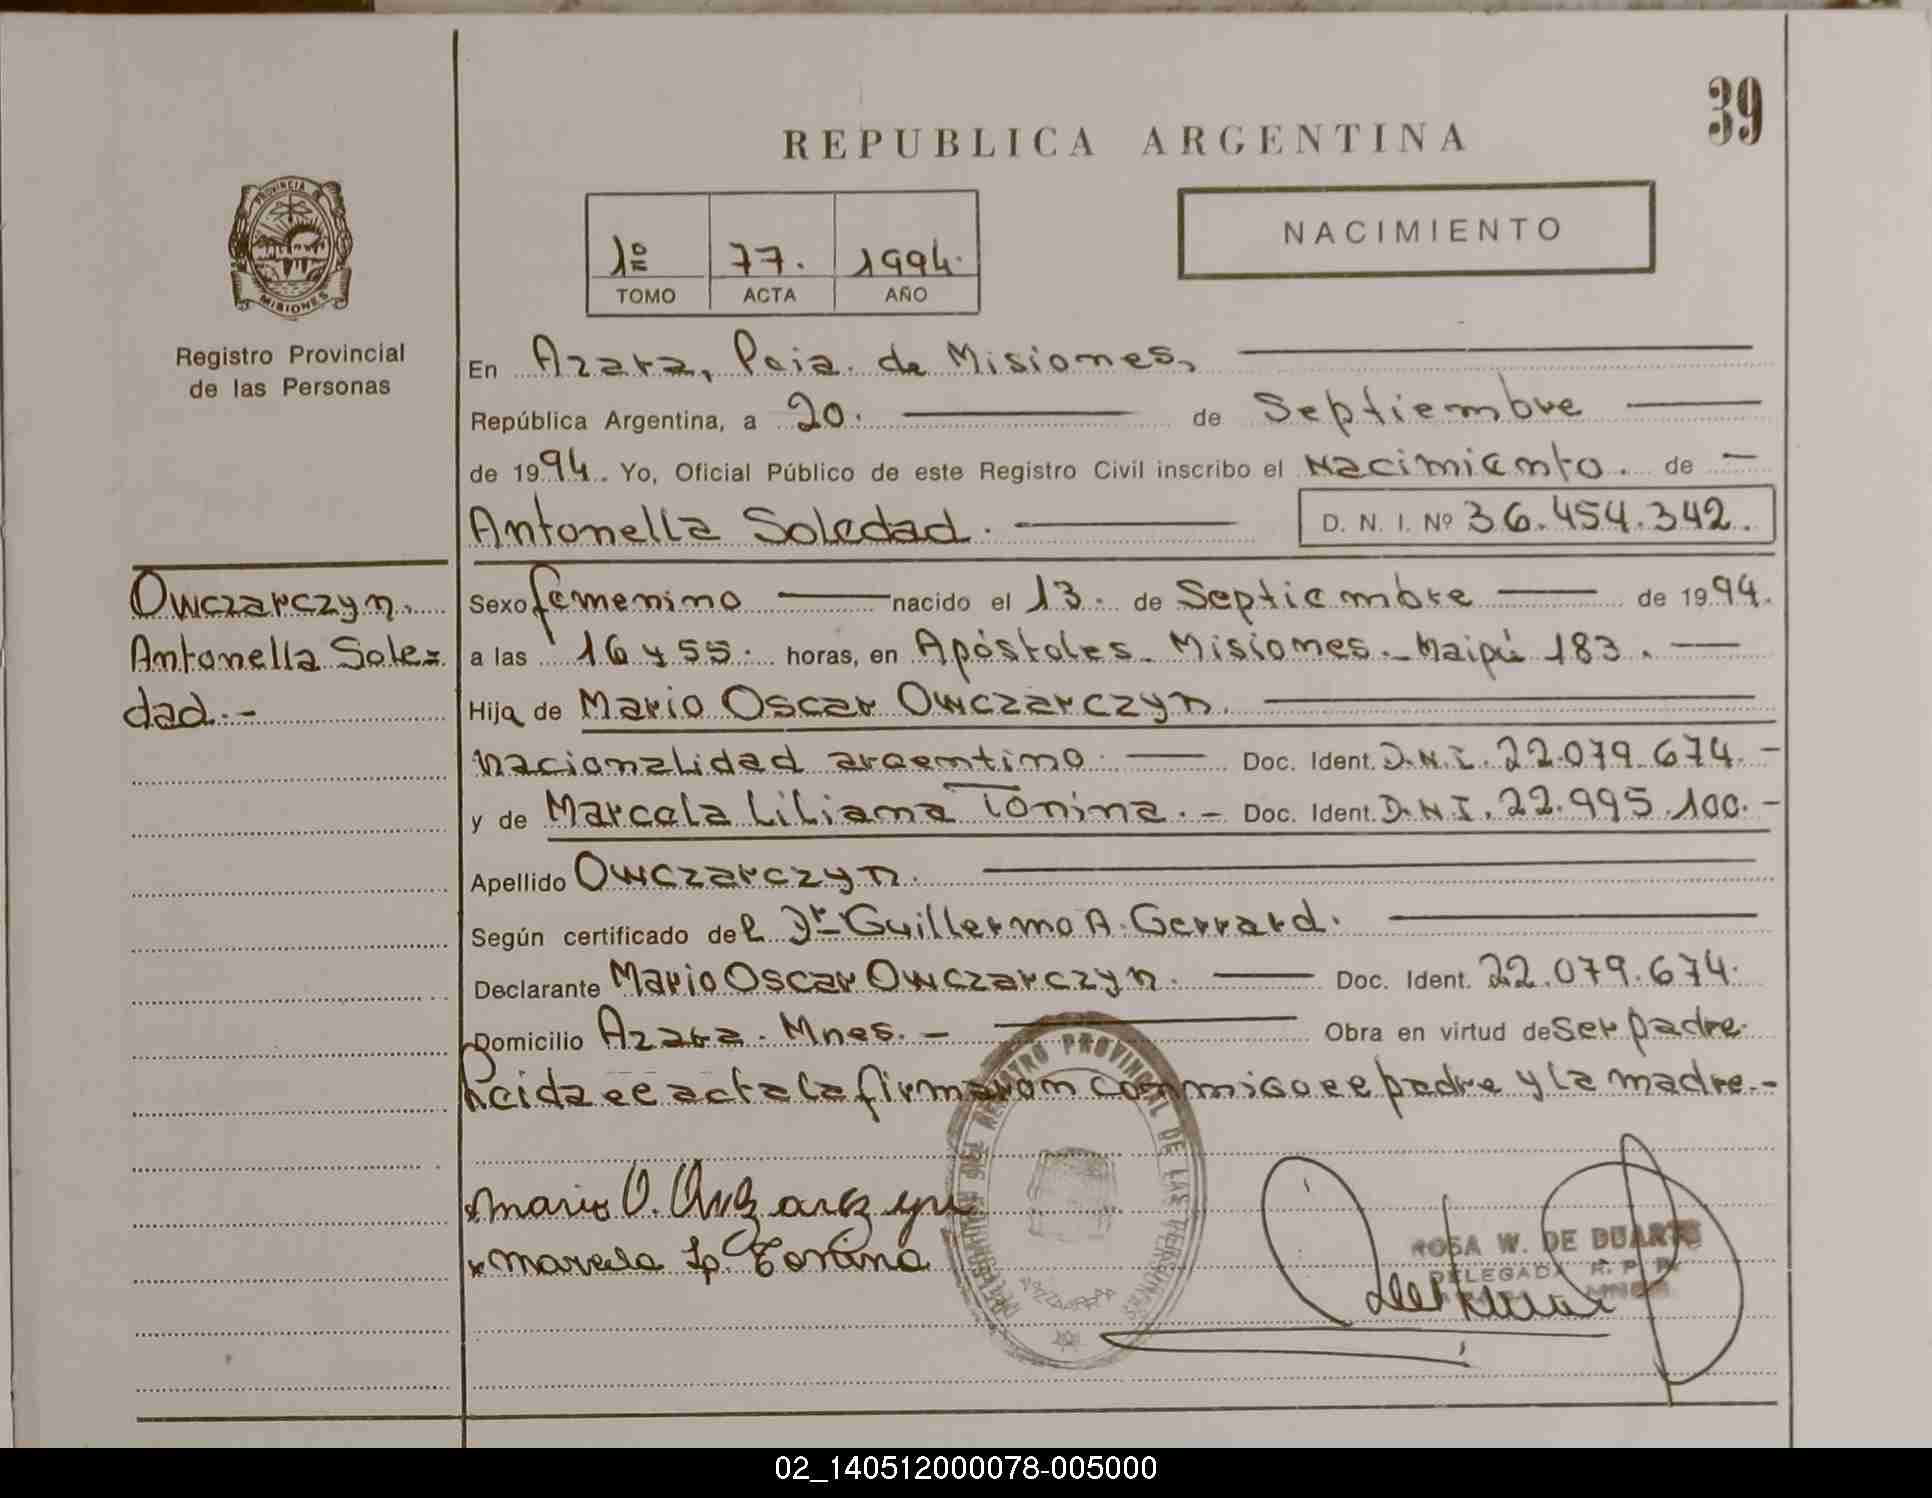 39
REPUBLICA ARGENTINA
NACIMIENTO
1º 77. 1994.
TOMO ACTA AÑO
PROVINCIA
MISIONES
Registro Provincial
de las Personas
En Azara, Pcia. de Misiones,
República Argentina, a 20. de Septiembre
de 1994. Yo, Oficial Público de este Registro Civil inscribo el Nacimiento. de —
Antonella Soledad. D. N. I. Nº 36.454.342.
Owczarczyn.
Antonella Sole=
dad.-
Sexo femenino nacido el 13. de Septiembre de 1994.
a las 16 y 55. horas, en Apóstoles. Misiones.- Maipú 183.
Hija de Mario Oscar Owczarczyn.
nacionalidad argentino. Doc. Ident. D.N.I. 22.079.674.-
y de Marcela Liliana Tonina.- Doc. Ident. D.N.I. 22.995.100.-
Apellido Owczarczyn.
Según certificado del Dr Guillermo A. Gerrard.
Declarante Mario Oscar Owczarczyn. Doc. Ident. 22.079.674.
Domicilio Azara. Mnes.- Obra en virtud de ser padre.
Leida el acta la firmaron conmigo el padre y la madre.-
x Mario O. Owczarczyn
x Marcela L. Tonina
REGISTRO PROVINCIAL DE LAS PERSONAS
ROSA W. DE DUARTE
DELEGADA R. P. P.
02_140512000078-005000